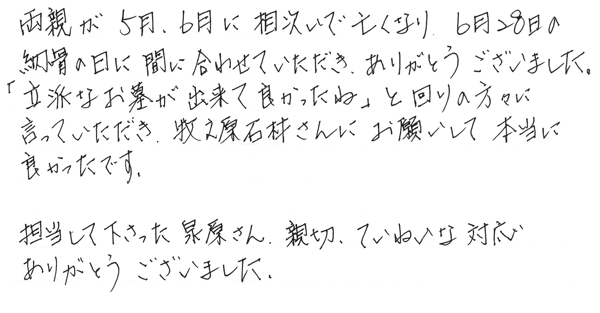 両親が 5月、6月に 相次いで亡くなり、6月28日の
納骨の日に 間に合わせていただき、ありがとう ございました。
「立派なお墓が 出来て良かったね」と 回りの方々に
言っていただき、牧之原石材さんに お願いして 本当に
良かったです。
担当して下さった 泉原さん、親切、ていねいな 対応
ありがとう ございました。